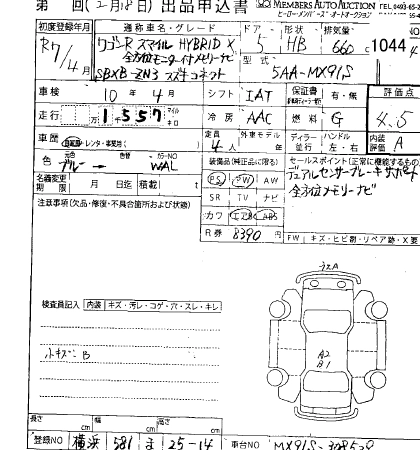 第 回(2月8日)出品申込書 MEMBERS AUTO AUCTION TEL 0493-65-2
ヒーローメンバーズ・オートオークション
初度登録年月 通称車名・グレード ドア 形状 排気量
R7/4 ワゴンR スマイル HYBRID X 5 HB 660 c 1044
全方位モニター付メモリーナビ 型式
5BXB-ZN3 スズキコネクト 5AA-MX91S
車検 10年4月 シフト IAT 保証書 有・無 評価点
走行 1557 マイル キロ 冷房 AAC 燃料 G 4.5
車歴 自家用・レンタ・事業用( ) 定員 4人 外車モデル 年 ディラー 並行 ハンドル 左・右 内装評価 A
色 元色 ブルー → 色替 カラーNO WAL 装備品(純正品に限る) セールスポイント(正常に機能するもの)
名義変更期限 月 日迄 積載 t PS PW AW デュアルセンサーブレーキサポート
SR TV ナビ 全方位メモリーナビ
注意事項(欠品・修復・不具合箇所および状態) カワ エアB ABS
R券 8390 FW キズ・ヒビ割・リペア跡・X要
うスA
検査員記入 内装 キズ・汚レ・コゲ・穴・スレ・キレ
小キズ B
A2
B1
長さ cm 幅 cm 高さ cm
登録NO 横浜 581 ま 25-14 車台NO MX91S-308539